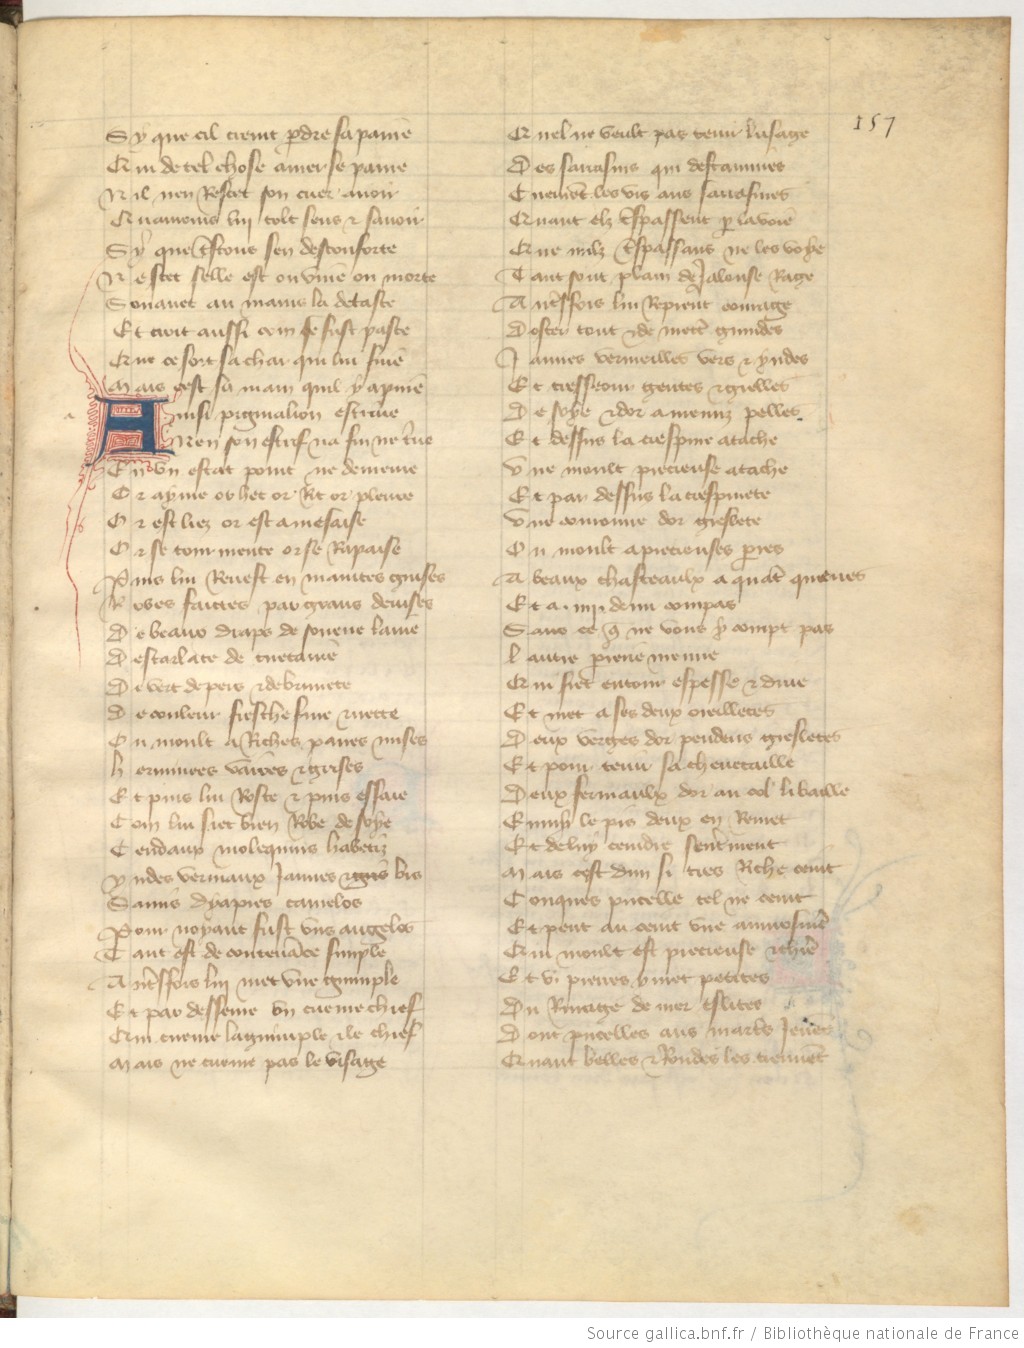 157
Sy que cil crient perdre sa paine
Qui de tel chose amer se paine
Ne il nen Rescet son cuer avoir
Qu amours luy tolt sens et savoir
Sy que trestous sen desconforte
Ne scet selle est ou vive ou morte
Souvent au mains la detaste
Et croit aussi com se fust paste
Que ce soit sa char qui lui fuie
Mais cest sa main quil y apuie
Ainsi pigmalion estrive
Nen son estrif na fin ne trive
En un estat point ne demeure
Or ayme or het or Rit or pleure
Or est liez or est a mesaise
Or se tourmente or se Rapaise
Puis lui Revest en maintes guises
Robes faictes par grans devises
De beaux draps de soueue laine
Descarlate de tiretaine
De vert de pers et de brunete
De couleur fresche fine et nette
Ou moult a Riches panes mises
herminees vaires et grises
Et puis lui Roste et puis essaie
Com lui siet bien Robe de soye
Cendaux molequins
yndes vermaux Jaunes et bis
Samis dyapres camelos
Pour noyant fust uns angelos
Tant est de contenance simple
Autresfois luy met une guimple
Et par desseure un cueurechief
Qui cueuure la guimple et le chief
Mais ne cueuure pas le visage
Quel ne veult pas tenir lusage
Des sarrasins qui destamines
Cueuurent les vis aus sarrasines
Quant elz trespassent par la voie
Que nulz trespassans ne les voye
Tant sont plain de Jalouse Rage
Autresfois lui Reprent courage
Doster tout et de mettre guindes
Jaunes vermeilles vers et yndes
Et tresseour gentes et gresles
De soye et dor a menuz pelles
Et dessus la crespine atache
Une moult precieuse atache
Et par dessus la crespinete
Une couronne dor greslete
Ou moult a precieuses pierres
A beaux chasteaulx a quatre quarres
Et a .iiii. demi compas
Sans ce que ne vous y compt pas
lautre pierrerie menue
Qui siet entour espesse et drue
Et met a ses deux oreilletes
Deux verges dor pendens gresletes
Et pour tenir sa cheuecaille
Deux fermaulx dor au col li baille
Enmy le pis deux en Remet
Et de luy ceindre sentremet
Mais cest dun si tres Riche ceint
Conques pucelle tel ne ceint
Et pent au ceint une aumosniere
Qui moult est precieuse et chiere
Et vi pierres y met petites
Du Rivage de mer eslites
Dont pucelles aus
Quant belles et Rondes les treuuent
Source gallica.bnf.fr / Bibliothèque nationale de France